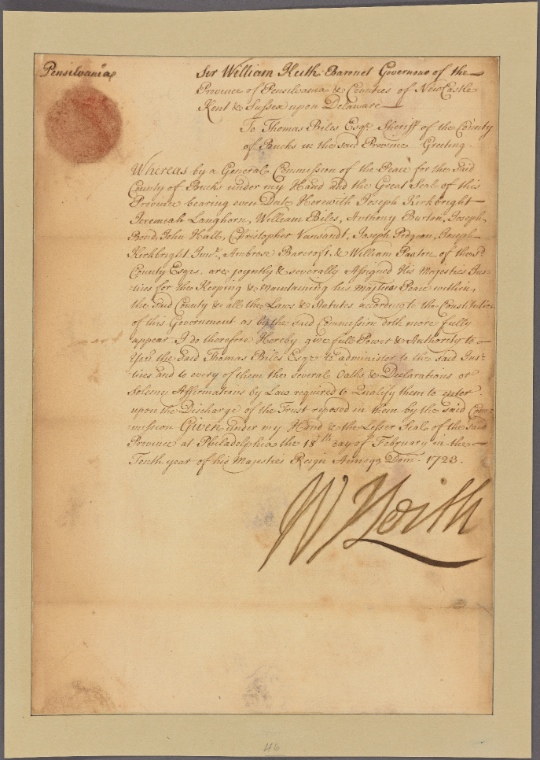 Pensilvania
Sir William Keith Baronet Governour of the
Province of Pensilvania & Counties of New Castle
Kent & Sussex upon Delaware
To Thomas Biles Esqr. Sheriff of the County
of Bucks in the said Province Greeting
Whereas by a General Commission of the Peace for the Said
County of Bucks under my Hand and the Great Seal of this
Province bearing even Date Herewith Joseph Kirkbright
Jeremiah Langhorn, William Biles, Anthony Burton, Joseph
Bond, John Hall, Christopher Vansandt, Joseph Pidgeon, Joseph
Kirkbright Junr. Ambrose Barcroft & William Paxton of the
County Esqrs. are joyntly & severally Assigned His Majesties Jus-
tices for the Keeping & Maintaining his Majties Peace within
the said County & all the Laws & Statutes according to the Constitution
of this Government as by the said Commission doth more fully
appear I do therefore Hereby give full Power & Authority to
You the said Thomas Biles Esqr. to administer to the said Jus-
tices and to every of them the several Oaths & Declarations or
Solemn Affirmations by Law required to Qualify them to enter
upon the Discharge of the Trust reposed in them by the said Com-
mission Given under my Hand & the Lesser Seal of the said
Province at Philadelphia the 18th day of February in the
Tenth year of his Majesties Reign Annoq Dom. 1723.
W Keith
46